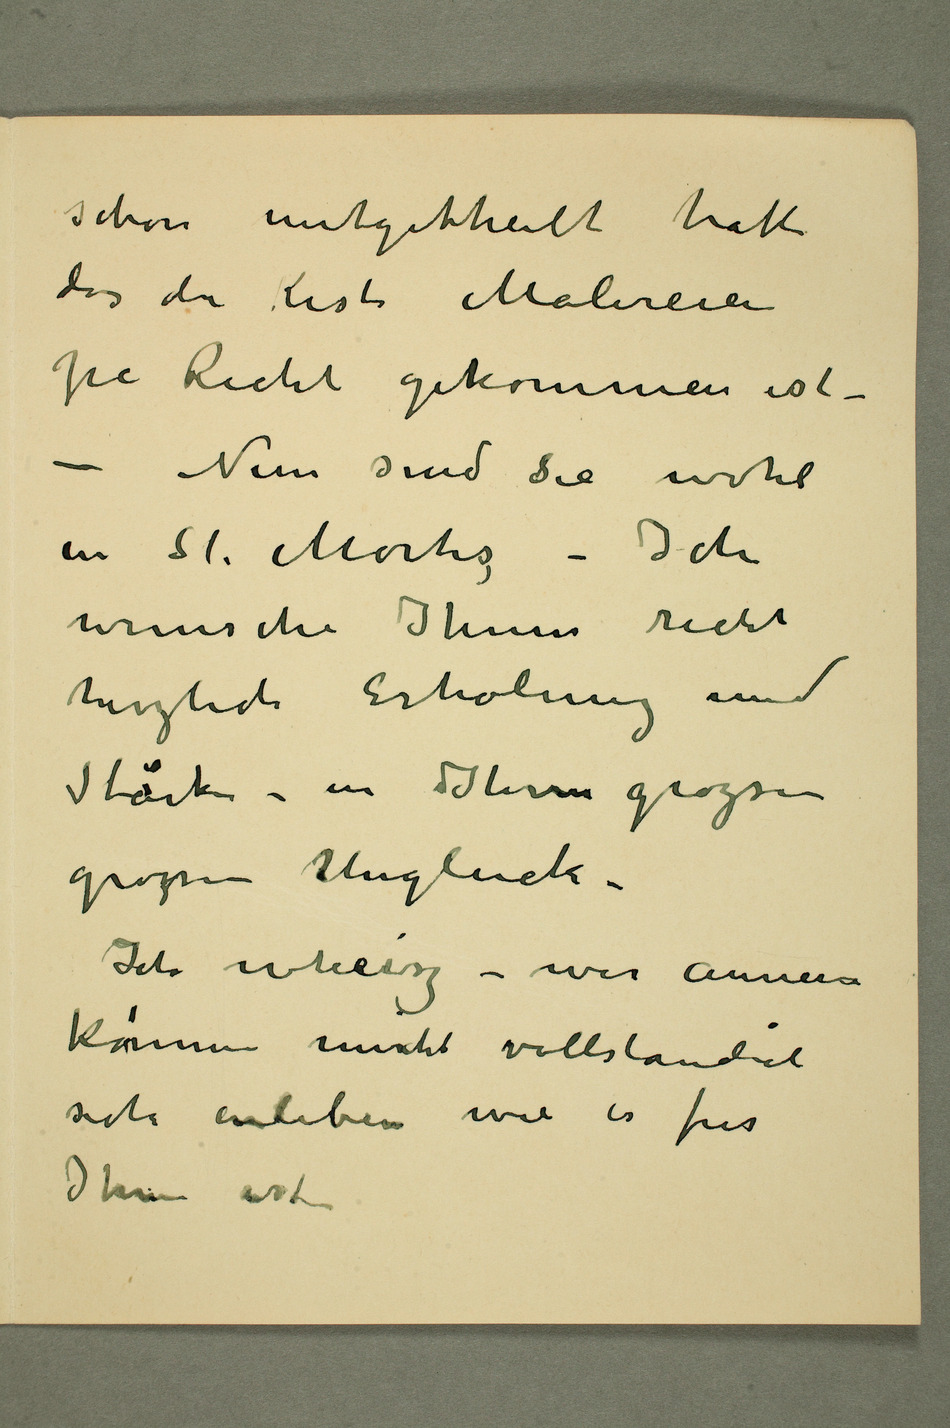 schon mitgetheilt hatte
das die Kiste Malereien
zu Recht gekommen ist –
– Nun sind Sie wohl
in St. Moritz – Ich
wunsche Ihnen recht
herzlich Erholung und
Stärke – in Ihrem groszen
groszen Ungluck –
Ich wheisz – wir annern
können nicht vollstandict
sich einleben wie es fur
Ihnen ist